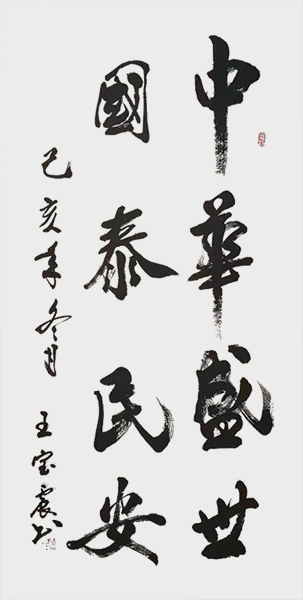 中華盛世
國泰民安
己亥年冬月
王宝震书